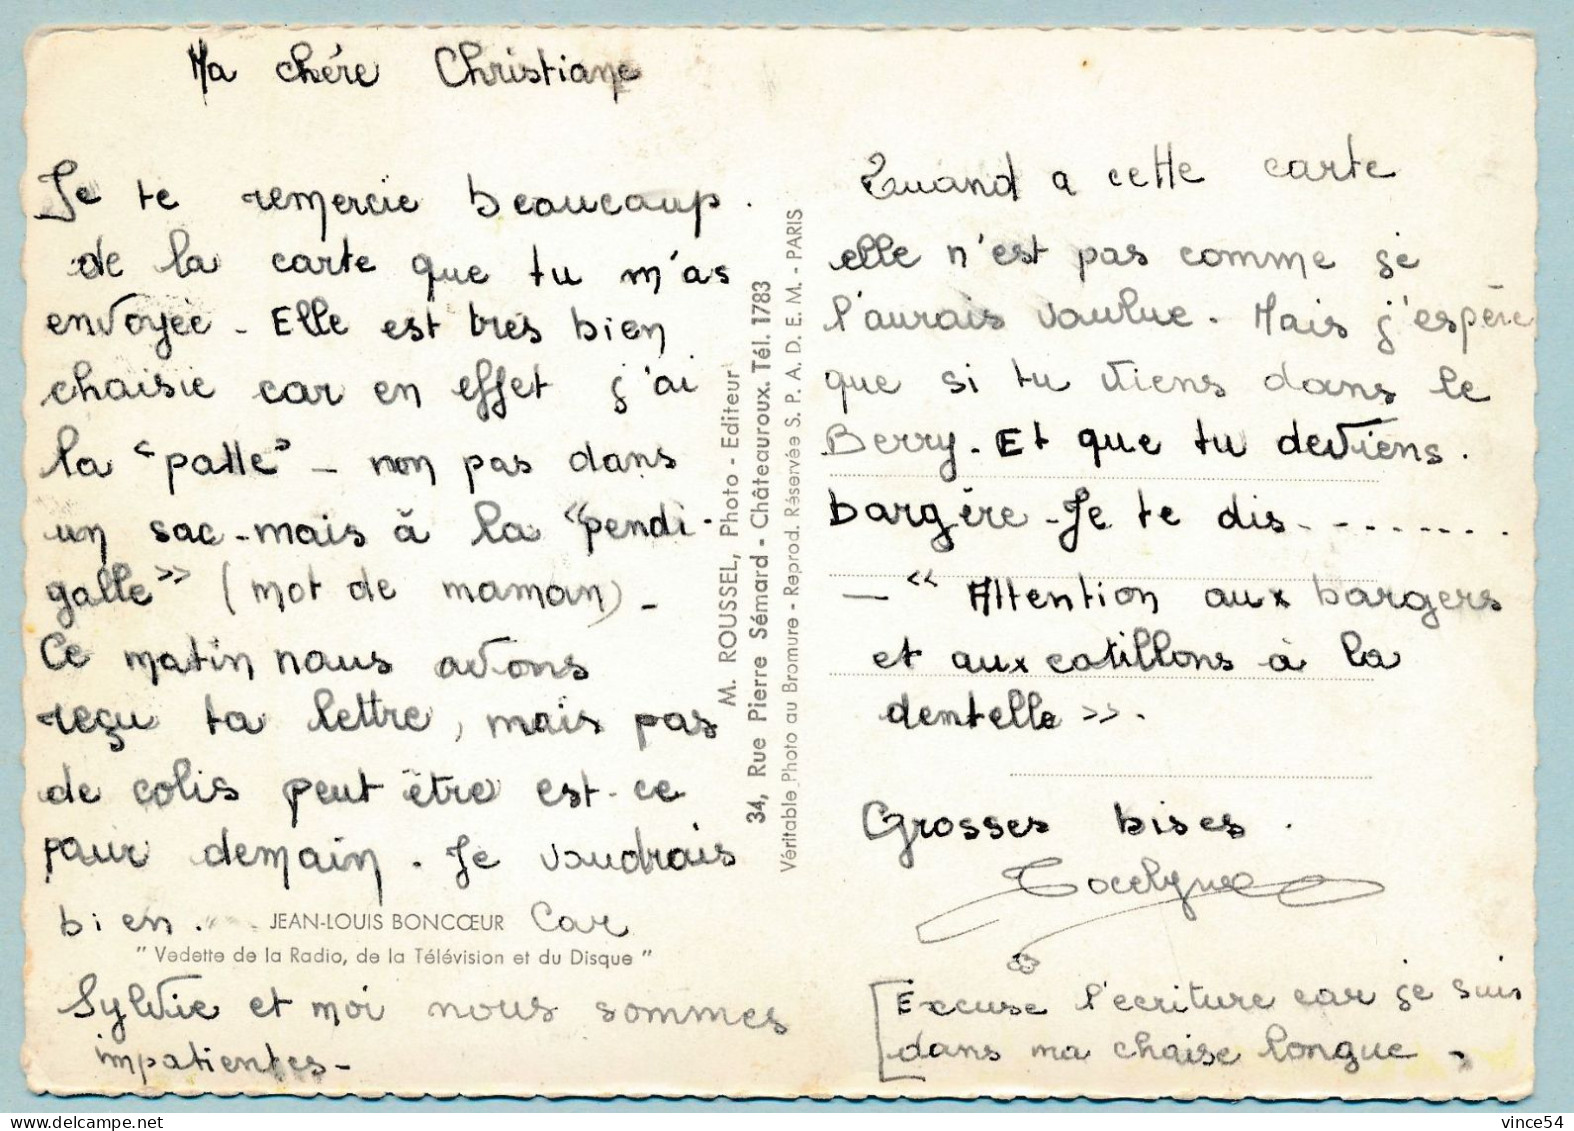 Ma chére Christiane
Je te remercie beaucoup.
de la carte que tu m'as
envoyée - Elle est très bien
choisie car en effet j'ai
la "patte" - non pas dans
un sac - mais à la "pendi-
galle" (mot de maman) -
Ce matin nous avons
reçu ta lettre, mais pas
de colis peut être est-ce
pour demain. Je voudrais
bien. Car
JEAN-LOUIS BONCŒUR
" Vedette de la Radio, de la Télévision et du Disque "
Sylvie et moi nous sommes
impatientes -
M. ROUSSEL, Photo - Editeur
34, Rue Pierre Sémard - Châteauroux. Tél. 1783
Véritable Photo au Bromure - Reprod. Réservée S. P. A. D. E. M. - PARIS
Quand a cette carte
elle n'est pas comme je
l'aurais voulue. Mais j'espère
que si tu viens dans le
Berry. Et que tu deviens.
bargère - Je te dis.........
- " Attention aux bargers
et aux cotillons à la
dentelle ».
Grosses bises.
Jocelyne
[Excuse l'ecriture car je suis
dans ma chaise longue.
vince54